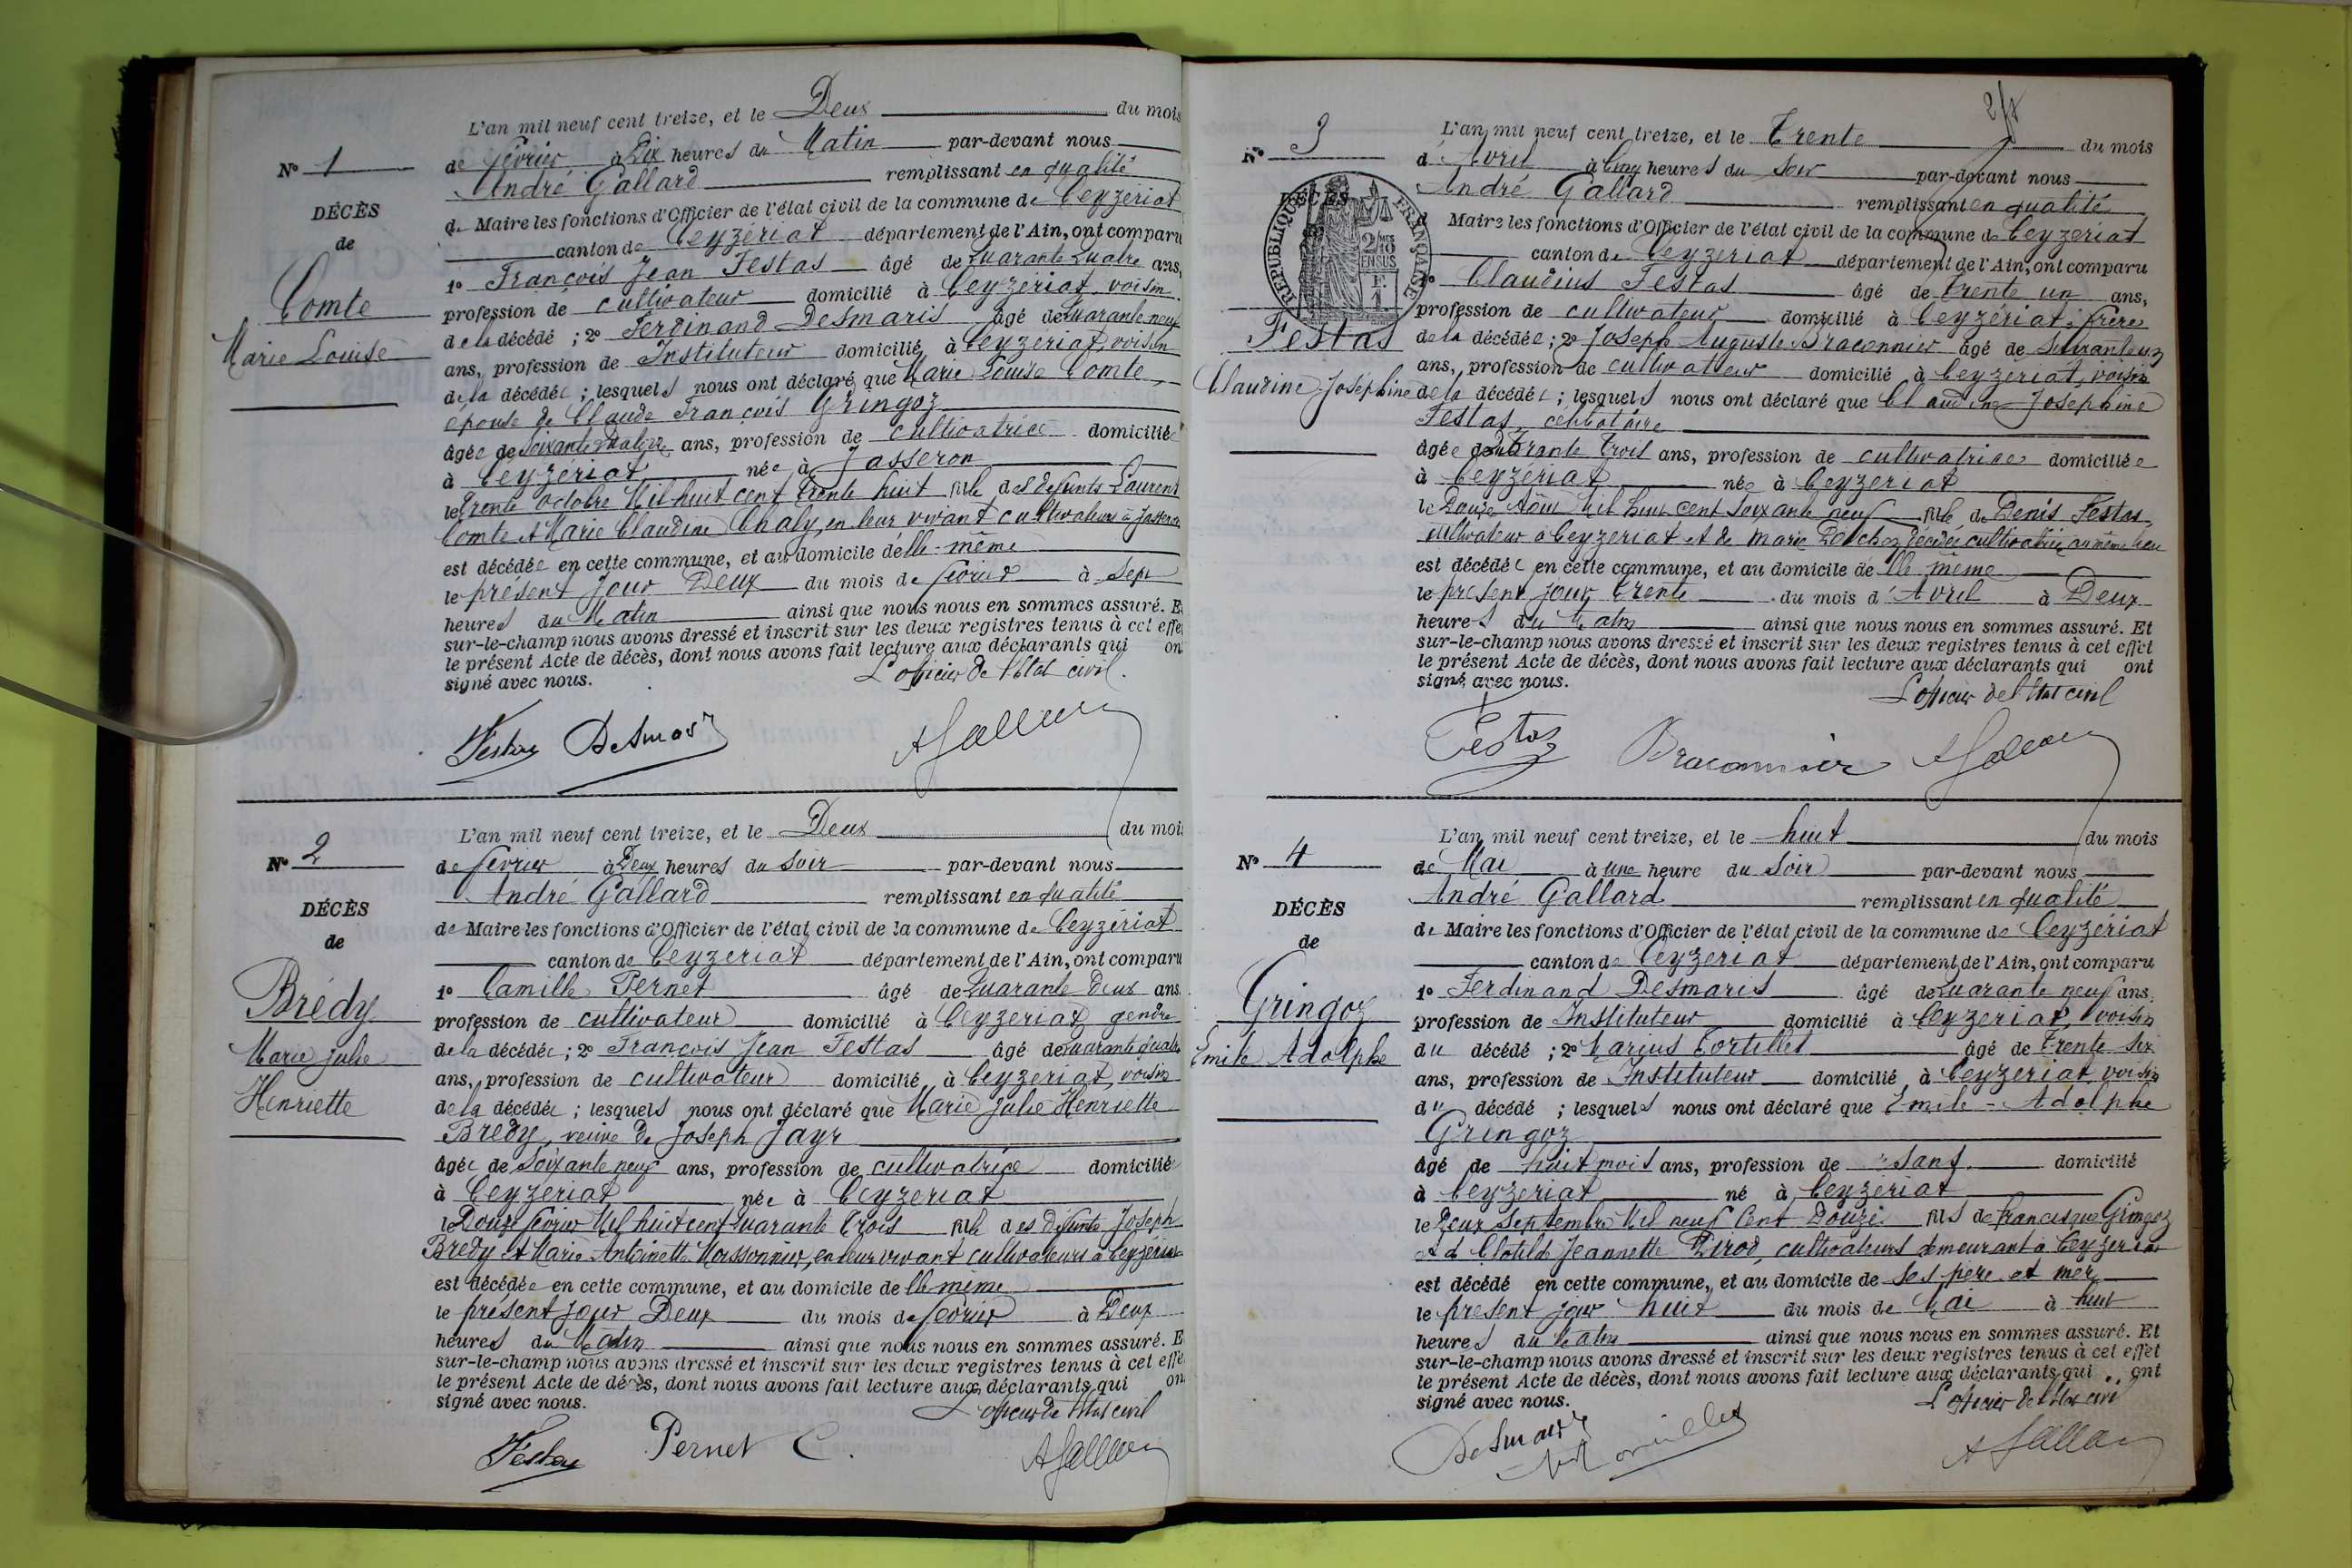 N° 1
DÉCÈS
de
Comte
Marie Louise
L'an mil neuf cent treize, et le Deux du mois
de février à Dix heures du Matin par-devant nous
André Gallard remplissant en qualité
de Maire les fonctions d'Officier de l'état civil de la commune de Ceyzériat
canton de Ceyzériat département de l'Ain, ont comparu
1° François Jean Festas âgé de quarante quatre ans,
profession de cultivateur domicilié à Ceyzériat, voisin
de la décédé ; 2° Ferdinand Desmaris âgé de quarante neuf
ans, profession de Instituteur domicilié à Ceyzériat, voisin
de la décédée ; lesquels nous ont déclaré que Marie Louise Comte,
épouse de Claude François Gringoz
âgée de soixante quatorze ans, profession de cultivatrice domiciliée
à Ceyzériat née à Jasseron
le trente octobre Mil huit cent trente huit fille des défunts Laurent
Comte et Marie Claudine Chaly, en leur vivant cultivateurs à Jasseron
est décédée en cette commune, et au domicile d'elle-même
le présent jour Deux du mois de février à sept
heures du Matin ainsi que nous nous en sommes assuré. E
sur-le-champ nous avons dressé et inscrit sur les deux registres tenus à cet effe
le présent Acte de décès, dont nous avons fait lecture aux déclarants qui on
signé avec nous. L'officier de l'état civil.
Festas Desmaris AGallard
N° 2
DÉCÈS
de
Brédy
Marie Julie
Henriette
L'an mil neuf cent treize, et le Deux du moi
de février à Deux heures du soir par-devant nous
André Gallard remplissant en qualité
de Maire les fonctions d'Officier de l'état civil de la commune de Ceyzériat
canton de Ceyzériat département de l'Ain, ont comparu
1° Camille Pernet âgé de quarante deux ans
profession de cultivateur domicilié à Ceyzériat, gendre
de la décédée ; 2° François Jean Festas âgé de quarante quatre
ans, profession de cultivateur domicilié à Ceyzériat, voisin
de la décédée ; lesquels nous ont déclaré que Marie Julie Henriette
Brédy, veuve de Joseph Jayr
âgée de soixante neuf ans, profession de cultivatrice domiciliée
à Ceyzériat née à Ceyzériat
le Douze février Mil huit cent quarante trois fille des défunts Joseph
Brédy et Marie Antoinette Moissonnier, en leur vivant cultivateurs à Ceyzériat
est décédée en cette commune, et au domicile de elle même
le présent jour Deux du mois de février à Deux
heures du Matin ainsi que nous nous en sommes assuré. E
sur-le-champ nous avons dressé et inscrit sur les deux registres tenus à cet effe
le présent Acte de décès, dont nous avons fait lecture aux déclarants qui on
signé avec nous. L'officier de l'état civil
Festas Pernet C. AGallard
N° 3
DÉCÈS
RÉPUBLIQUE FRANÇAISE
Festas
Claudine Joséphine
L'an mil neuf cent treize, et le Trente du mois
d'Avril à Cinq heures du soir par-devant nous
André Gallard remplissant en qualité
d Maire les fonctions d'Officier de l'état civil de la commune de Ceyzériat
canton de Ceyzériat département de l'Ain, ont comparu
1° Claudius Festas âgé de trente un ans,
profession de cultivateur domicilié à Ceyzériat, frère
de la décédée ; 2° Joseph Auguste Braconnier âgé de
ans, profession de cultivateur domicilié à Ceyzériat, voisin
de la décédée ; lesquels nous ont déclaré que Claudine Joséphine
Festas, célibataire
âgée de quarante trois ans, profession de cultivatrice domiciliée
à Ceyzériat née à Ceyzériat
le Douze Août Mil huit cent soixante neuf fille de Denis Festas,
cultivateur à Ceyzériat et de Marie décédée cultivatrice au même lieu
est décédée en cette commune, et au domicile de elle même
le présent jour trente du mois d'Avril à Deux
heures du Matin ainsi que nous nous en sommes assuré. Et
sur-le-champ nous avons dressé et inscrit sur les deux registres tenus à cet effet
le présent Acte de décès, dont nous avons fait lecture aux déclarants qui ont
signé avec nous. L'officier de l'état civil
Festas Braconnier AGallard
N° 4
DÉCÈS
de
Gringoz
Emile Adolphe
L'an mil neuf cent treize, et le huit du mois
de Mai à une heure du soir par-devant nous
André Gallard remplissant en qualité
de Maire les fonctions d'Officier de l'état civil de la commune de Ceyzériat
canton de Ceyzériat département de l'Ain, ont comparu
1° Ferdinand Desmaris âgé de quarante neuf ans,
profession de Instituteur domicilié à Ceyzériat, voisin
du décédé ; 2° Marius Tortillet âgé de trente six
ans, profession de Instituteur domicilié à Ceyzériat, voisin
du décédé ; lesquels nous ont déclaré que Emile-Adolphe
Gringoz
âgé de huit mois ans, profession de sans domicilié
à Ceyzériat né à Ceyzériat
le deux septembre Mil neuf cent Douze fils de Francisque Gringoz
et d Clotilde Jeannette Pirod, cultivateurs demeurant à Ceyzériat
est décédé en cette commune, et au domicile de ses père et mère
le présent jour huit du mois de Mai à huit
heures du Matin ainsi que nous nous en sommes assuré. Et
sur-le-champ nous avons dressé et inscrit sur les deux registres tenus à cet effet
le présent Acte de décès, dont nous avons fait lecture aux déclarants qui ont
signé avec nous. L'officier de l'état civil
Desmaris AGallard